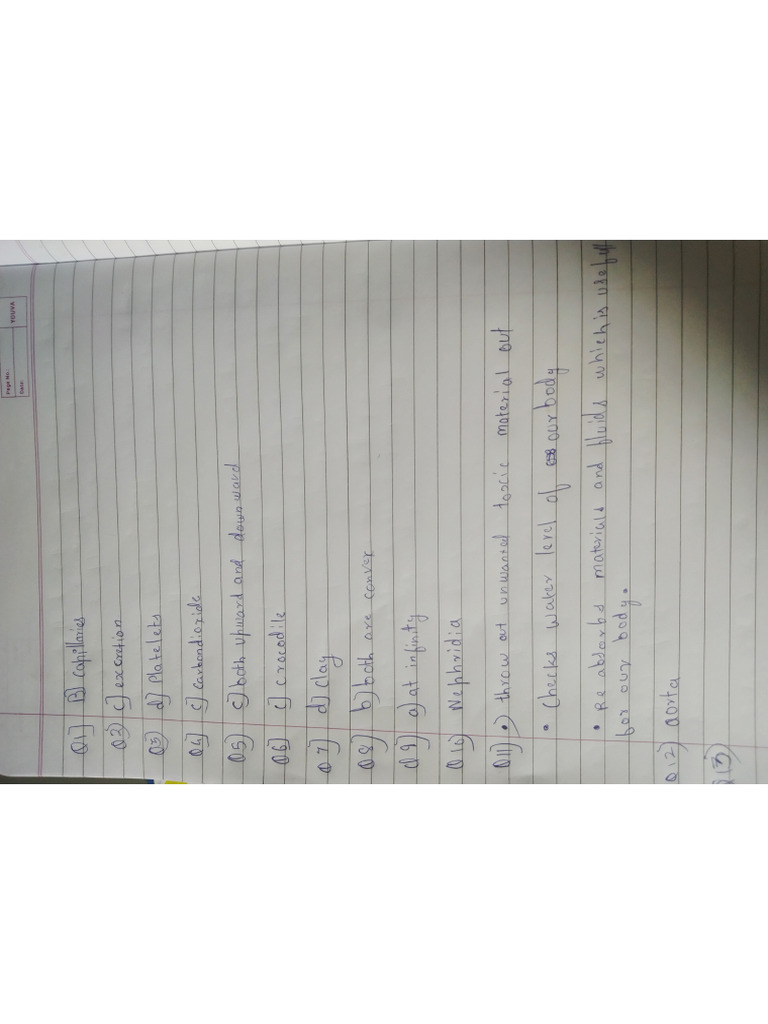 Page No.
Date:
YOUVA
Q1] B] Capillaries
Q2) c] excretion
Q3) d] Platelets
Q4] c] carbondioxide
Q5) c) both upward and downward
Q6] c] crocodile
Q7] d] clay
Q8] b) both are convex
Q9] a) at infinity
Q10) Nephridia
Q11) •) throw out unwanted toxic material out
• Checks water level of our body
• Re absorbs materials and fluids which is useful
for our body.
Q12) aorta
Q13)